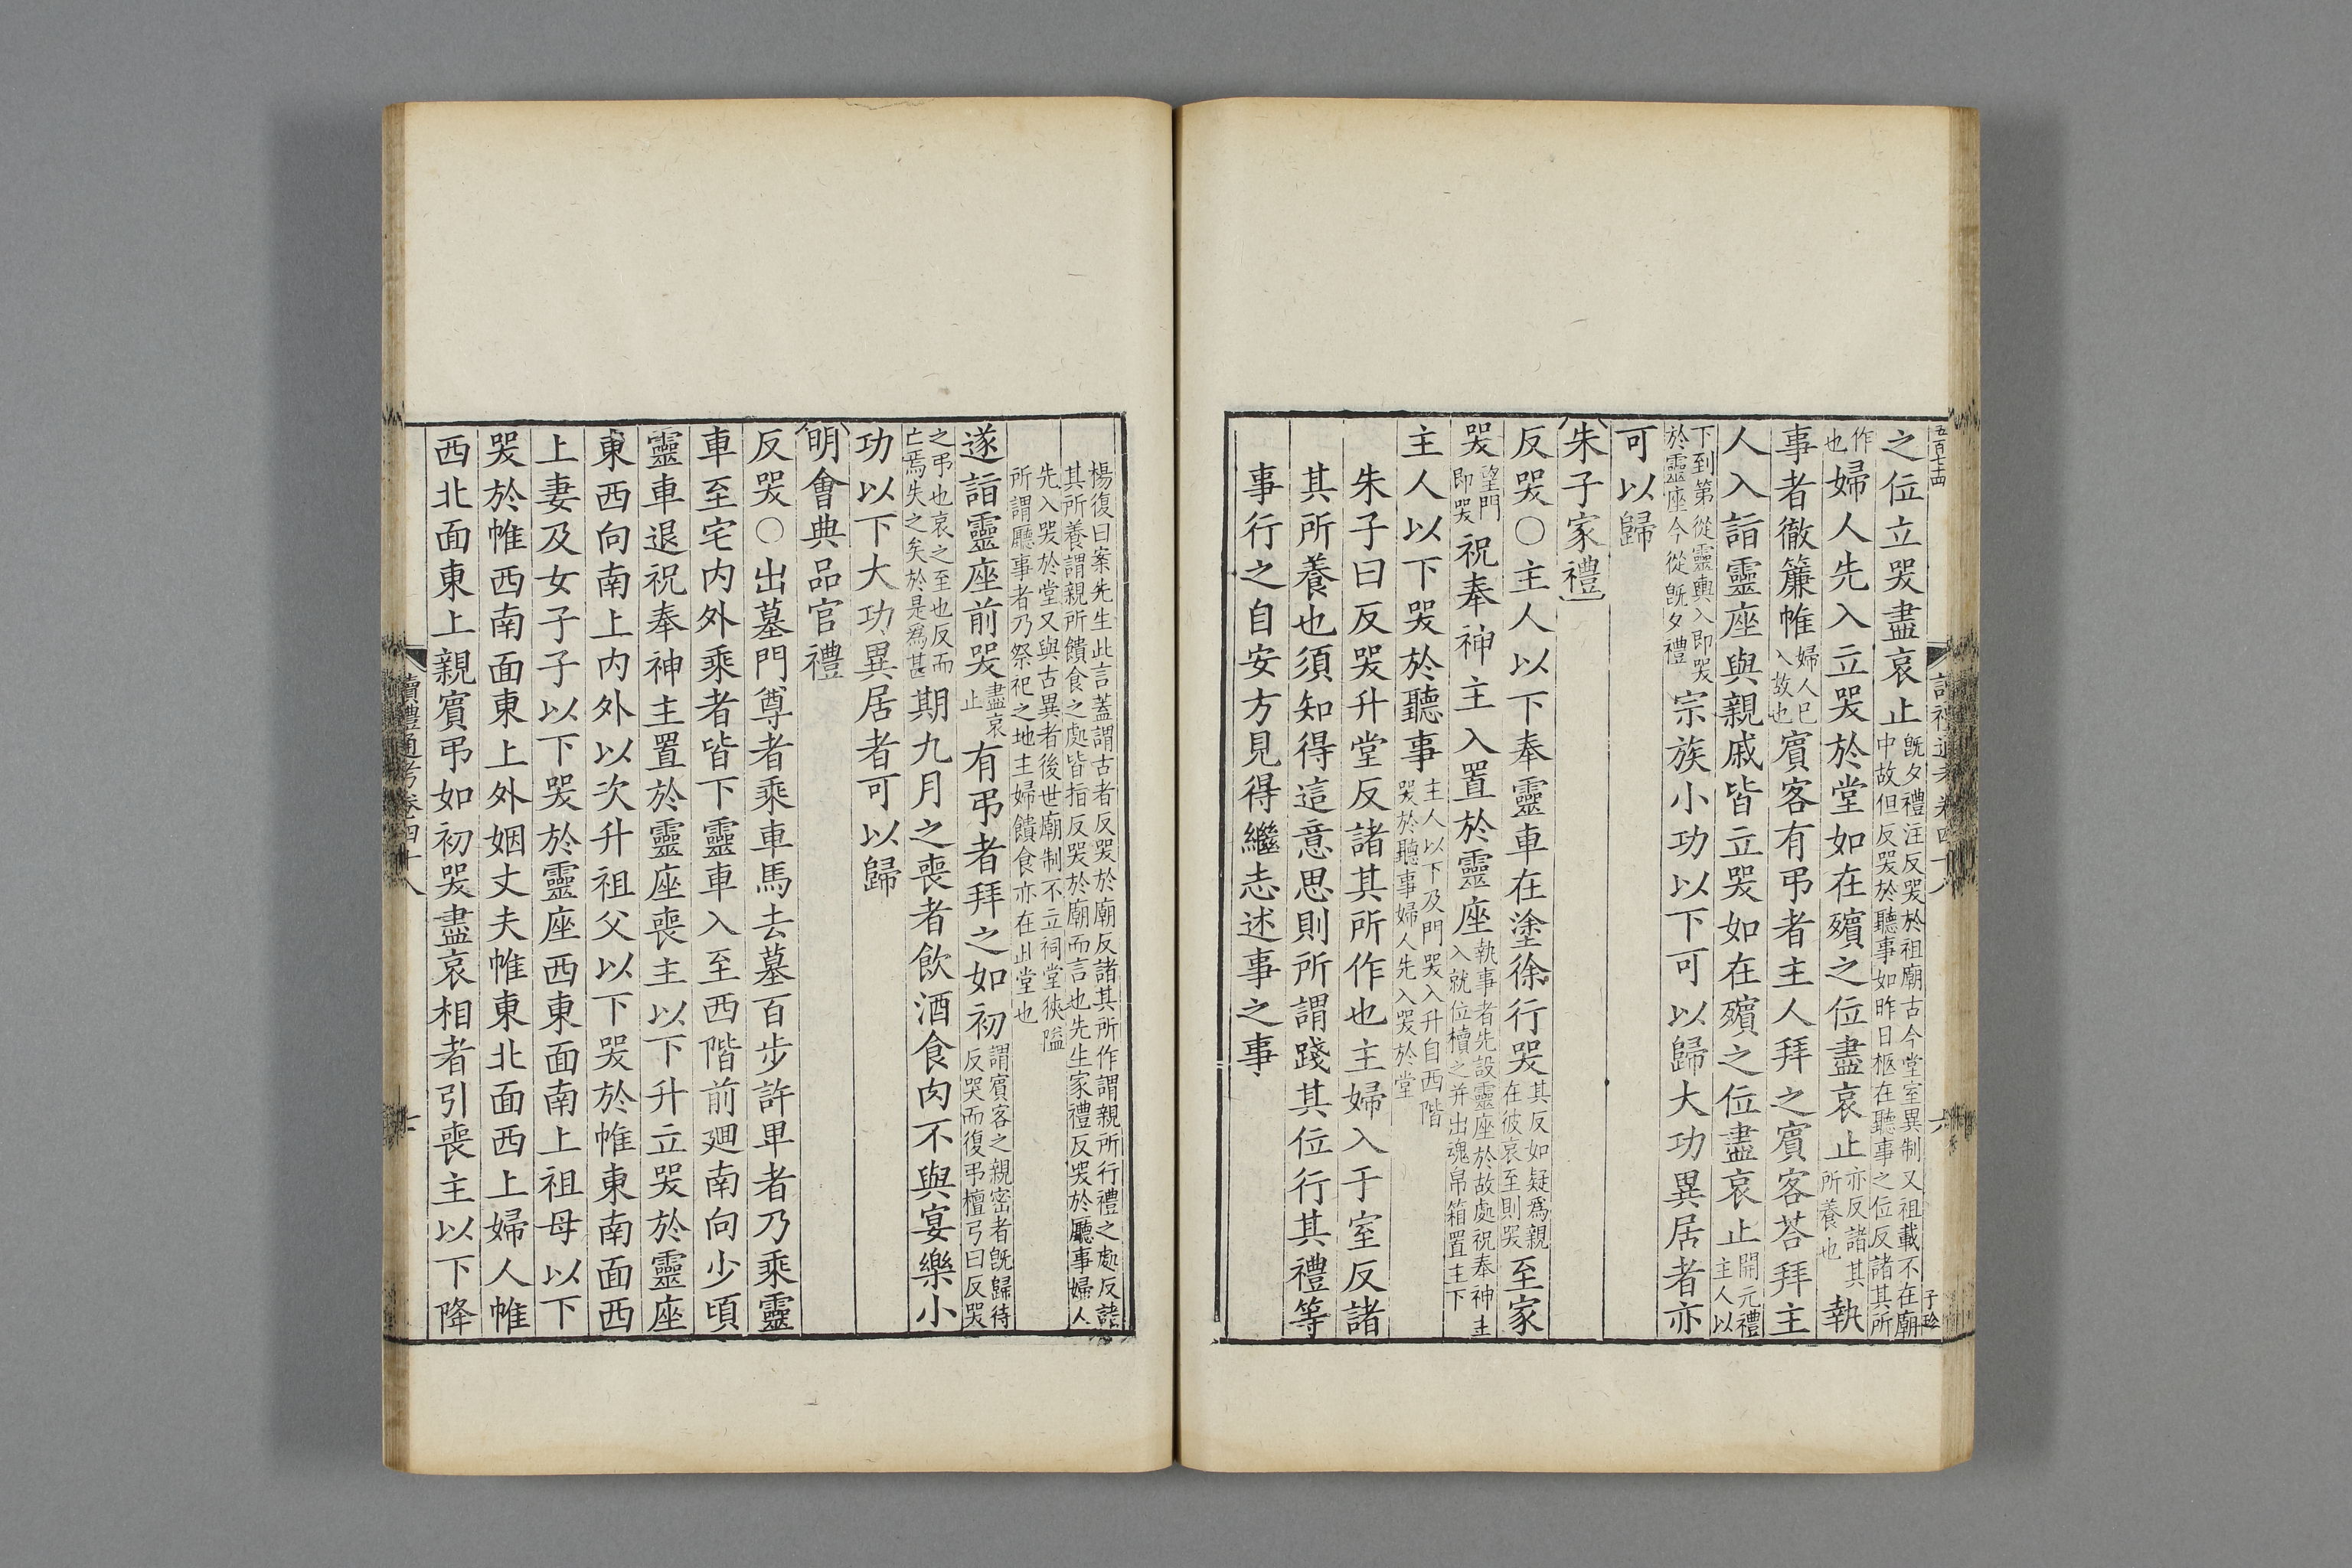 五百七十四
之位立哭盡哀止旣夕禮注反哭於祖廟古今堂室異制又祖載不在廟中故但反哭於聽事如昨日柩在聽事之位反諸其所
作也婦人先入立哭於堂如在殯之位盡哀止亦反諸其所養也執
事者徹簾帷婦人巳入故也賓客有弔者主人拜之賓客荅拜主
人入詣靈座與親戚皆立哭如在殯之位盡哀止開元禮主人以
下到第從靈輿入即哭於靈座今從旣夕禮宗族小功以下可以歸大功異居者亦
可以歸
朱子家禮
反哭○主人以下奉靈車在塗徐行哭其反如疑爲親在彼哀至則哭至家
哭望門即哭祝奉神主入置於靈座執事者先設靈座於故處祝奉神主入就位櫝之并出魂帛箱置主下
主人以下哭於聽事主人以下及門哭入升自西階哭於聽事婦人先入哭於堂
朱子曰反哭升堂反諸其所作也主婦入于室反諸
其所養也須知得這意思則所謂踐其位行其禮等
事行之自安方見得繼志述事之事
子珍
楊復曰案先生此言蓋謂古者反哭於廟反諸其所作謂親所行禮之處反諸
其所養謂親所饋食之處皆指反哭於廟而言也先生家禮反哭於廳事婦人
先入哭於堂又與古異者後世廟制不立祠堂狹隘
所謂廳事者乃祭祀之地主婦饋食亦在此堂也
遂詣靈座前哭盡哀止有弔者拜之如初謂賓客之親密者旣歸待反哭而復弔檀弓曰反哭
之弔也哀之至也反而亡焉失之矣於是爲甚期九月之喪者飲酒食肉不與宴樂小
功以下大功異居者可以歸
明會典品官禮
反哭○出墓門尊者乘車馬去墓百步許卑者乃乘靈
車至宅内外乘者皆下靈車入至西階前廻南向少頃
靈車退祝奉神主置於靈座喪主以下升立哭於靈座
東西向南上内外以次升祖父以下哭於帷東南面西
上妻及女子子以下哭於靈座西東面南上祖母以下
哭於帷西南面東上外姻丈夫帷東北面西上婦人帷
西北面東上親賓弔如初哭盡哀相者引喪主以下降
讀禮通考卷四十八